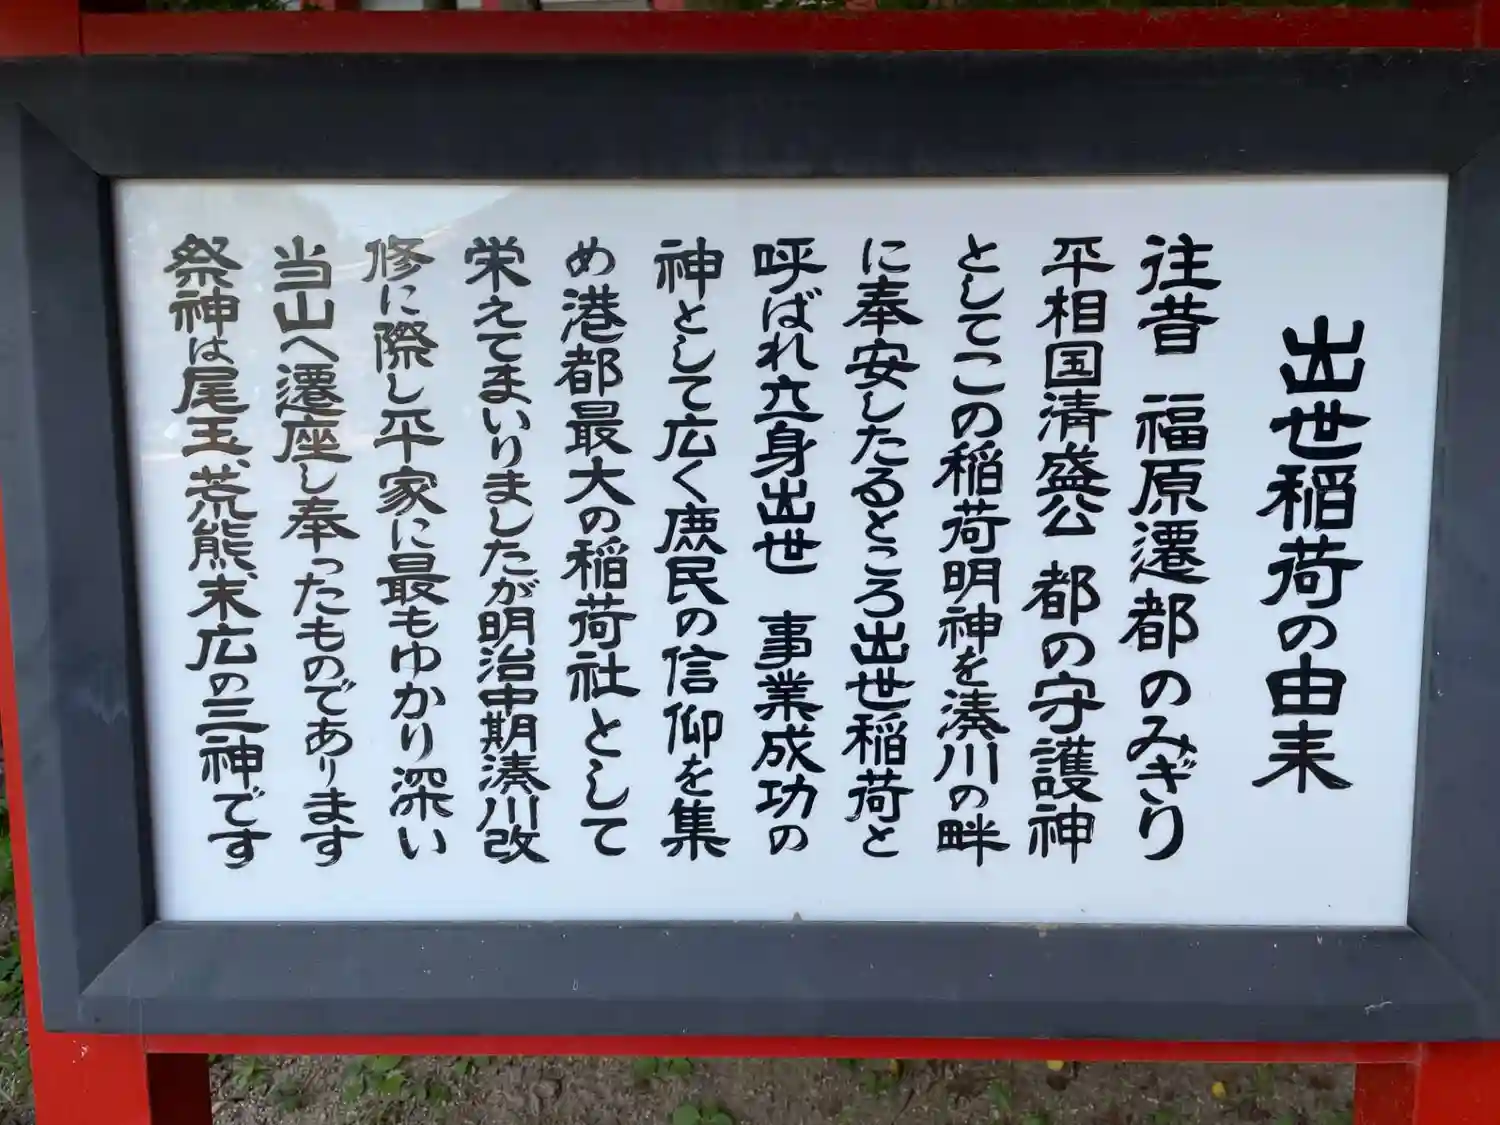 出世稲荷の由来
往昔 福原遷都のみぎり
平相国清盛公 都の守護神
としてこの稲荷明神を湊川の畔
に奉安したるところ出世稲荷と
呼ばれ立身出世 事業成功の
神として広く庶民の信仰を集
め港都最大の稲荷社として
栄えてまいりましたが明治中期湊川改
修に際し平家に最もゆかり深い
当山へ遷座し奉ったものであります
祭神は尾玉、荒熊、末広の三神です